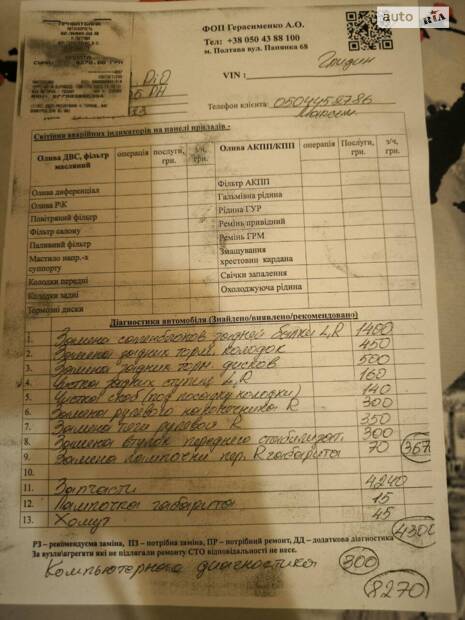 auto RIA
ФОП Герасименко А.О.
Тел: +38 050 43 88 100
м. Полтава вул. Панянка 68
VIN :
Гридин
Телефон клієнта: 0504458786
Максим
Світіння аварійних індикаторів на панелі приладів -
Олива ДВС, фільтр масляний операція послуги, грн. з/ч, грн. Олива АКПП/КПП операція Послуги, грн. з/ч, грн.
Олива диференціал Фільтр АКПП
Олива РіК Гальмівна рідина
Повітряний фільтр Рідина ГУР
Фільтр салону Ремінь привідний
Паливний фільтр Ремінь ГРМ
Мастило напр.-х суппорту Змащування хрестовин кардана
Колодки передні Свічки запалення
Колодки задні Охолоджуюча рідина
Тормозні диски
Діагностика автомобіля (Знайдено/виявлено/рекомендовано)
1. Замена сайлентблоков задней балки L,R 1400
2. Замена задних торм. колодок 450
3. Замена задних торм. дисков 500
4. Чистка задних ступиц L,R 160
5. Чистка скоб (под посадку колодки) 140
6. Замена рулевого наконечника R 300
7. Замена тяги рулевой R 350
8. Замена втулок переднего стабилизат. 300
9. Замена лампочки пер. R габарита 70
10.
11. Запчасти 4240
12. Лампочка габарита 15
13. Хомут 45
4300
РЗ – рекомендуєма заміна, ПЗ - потрібна заміна, ПР - потрібний ремонт, ДД – додаткова діагностика
За вузли\агрегати які не підлягали ремонту СТО відповідальності не несе.
Компьютерная диагностика 300
8270